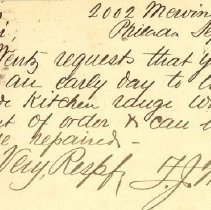 2002 Mervin
Philada
requests that y
an early day to
Kitchen range
of order & can
repaired.
Very Respf,